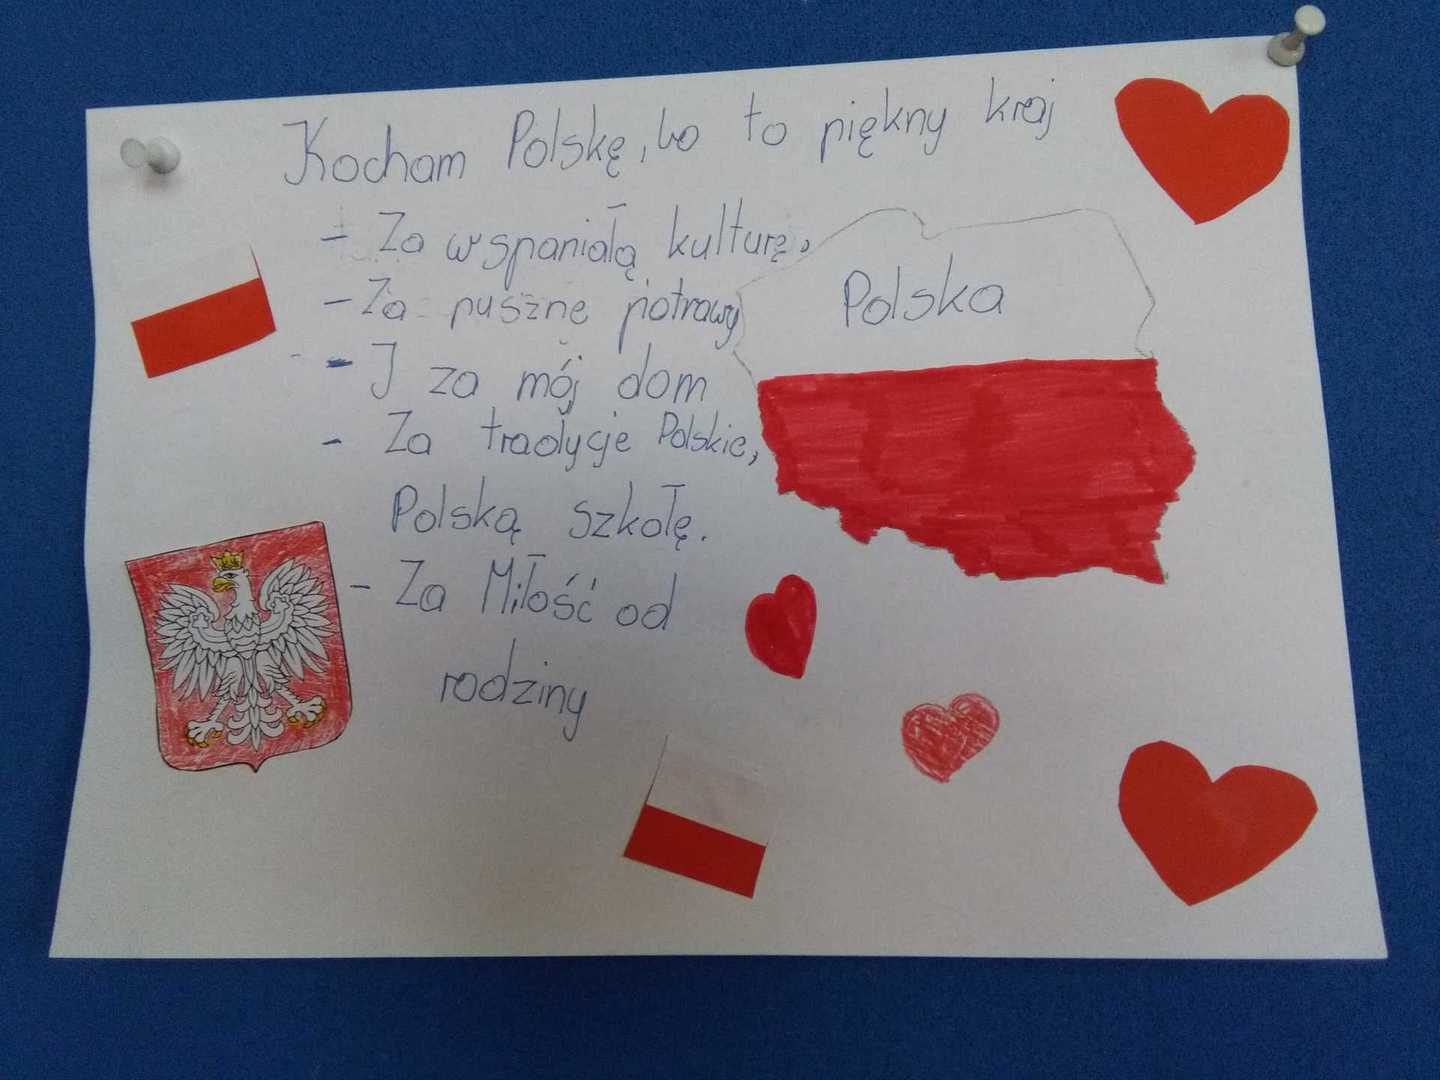 Kocham Polskę, bo to piękny kraj
- Za wspaniałą kulturę,
- Za puszne potrawy
- I za mój dom
- Za tradycje Polskie,
Polską szkołę.
- Za Miłość od
rodziny
Polska